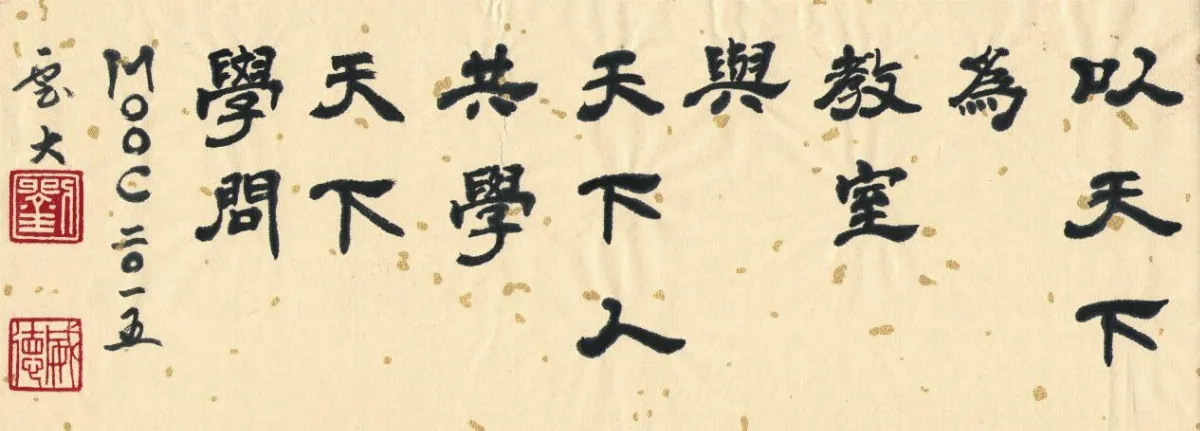 以天下
為
教室
與
天下人
共學
天下
學問
MOOC二〇一五
雲大
劉
威德